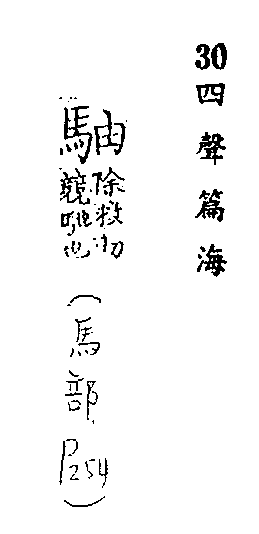 30 四聲篇海
駎 除救切
競馳也
(馬部 P254)